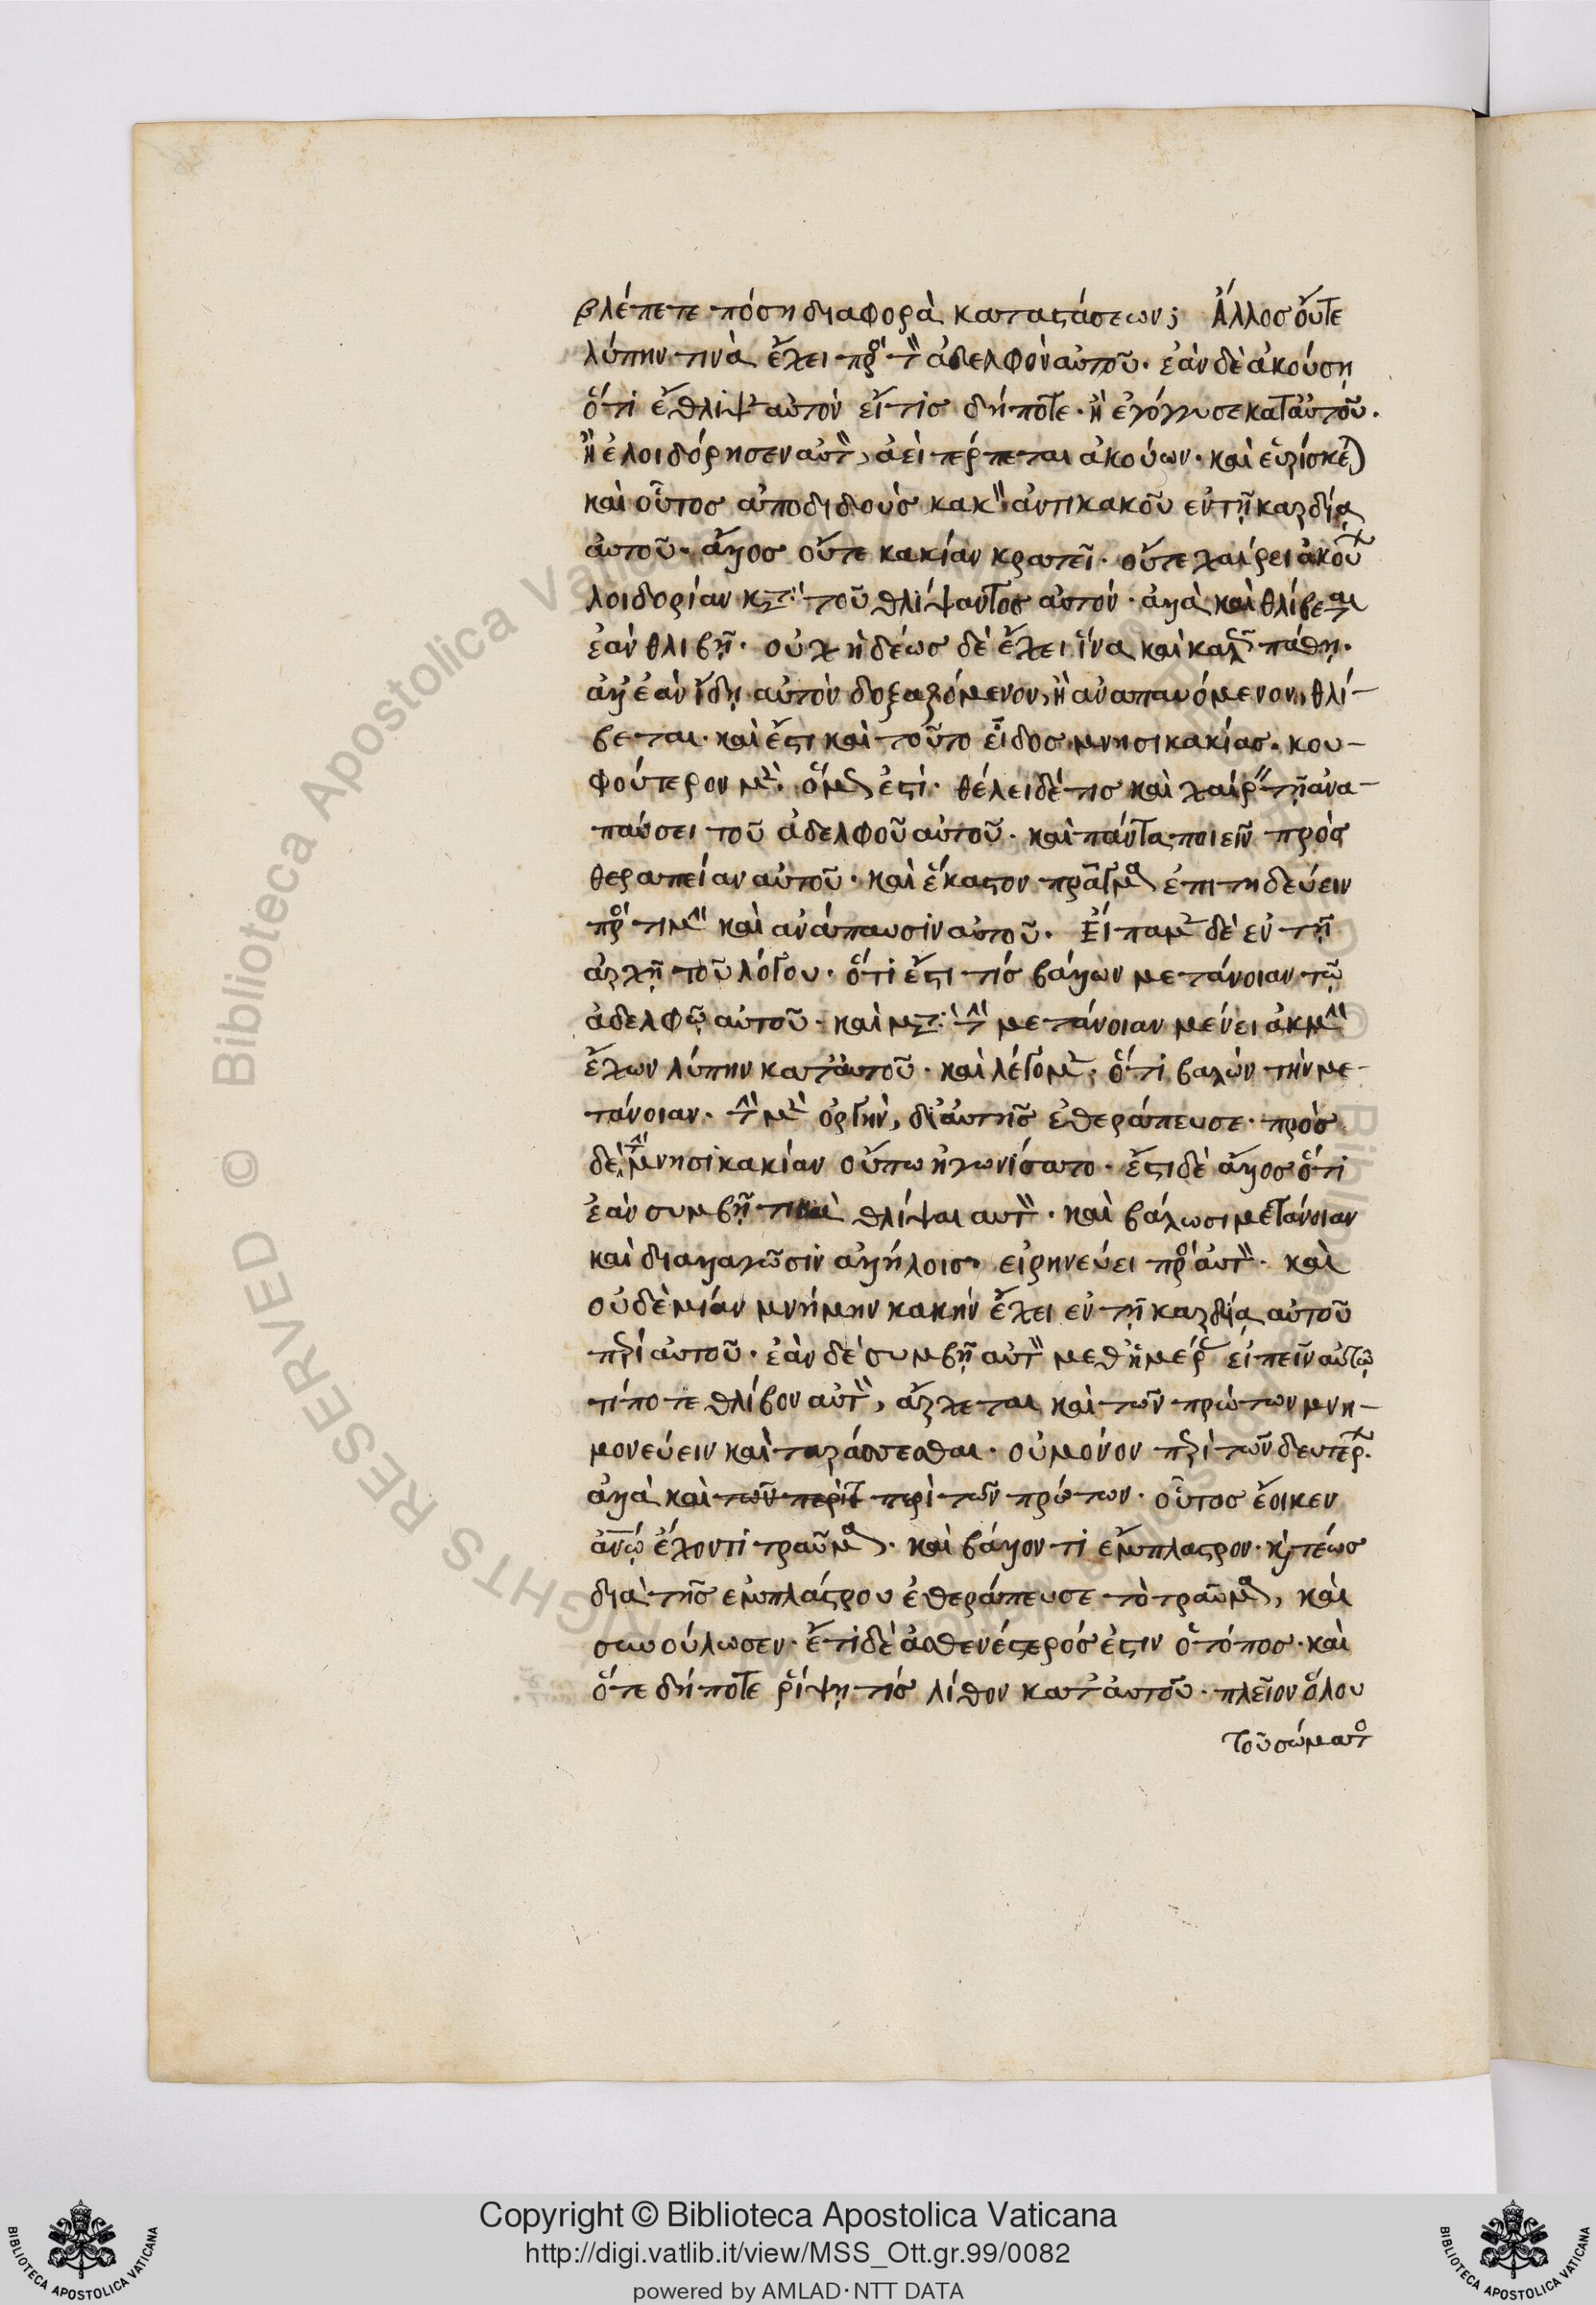 βλέπετε πόση διαφορὰ καταστάσεων; Ἄλλος οὔτε
λύπην τινὰ ἔχει πρὸς τὸν ἀδελφὸν αὐτοῦ· ἐὰν δὲ ἀκούσῃ
ὅτι ἔθλιψεν αὐτόν εἴ τις δήποτε· ἢ ἐγόγγυσε κατ' αὐτοῦ·
ἢ ἐλοιδόρησεν αὐτὸν, ἀεὶ τέρπεται ἀκούων· καὶ εὑρίσκεται
καὶ οὗτος ἀποδιδοὺς κακὸν ἀντὶ κακοῦ ἐν τῇ καρδίᾳ
αὐτοῦ· ἄλλος οὔτε κακίαν κρατεῖ· οὔτε χαίρει ἀκούων
λοιδορίαν κατὰ τοῦ θλίψαντος αὐτόν· ἀλλὰ καὶ θλίβεται
ἐὰν θλιβῇ· οὐχ ἡδέως δὲ ἔχει ἵνα καὶ καλὸν πάθῃ·
ἀλλ' ἐὰν ἴδῃ αὐτὸν δοξαζόμενον, ἢ ἀναπαυόμενον, θλί-
βεται· καὶ ἔστι καὶ τοῦτο εἶδος μνησικακίας· κου-
φούτερον μὲν· ὅμως ἐστί· θέλει δέ τις καὶ χαίρειν τῇ ἀνα-
παύσει τοῦ ἀδελφοῦ αὐτοῦ· καὶ πάντα ποιεῖν πρὸς
θεραπείαν αὐτοῦ· καὶ ἕκαστον πρᾶγμα ἐπιτηδεύειν
πρὸς τιμὴν καὶ ἀνάπαυσιν αὐτοῦ· Εἴπαμεν δὲ ἐν τῇ
ἀρχῇ τοῦ λόγου· ὅτι ἔστι τίς βάλλων μετάνοιαν τῷ
ἀδελφῷ αὐτοῦ· καὶ μετὰ τὴν μετάνοιαν μένει ἀκμὴν
ἔχων λύπην κατ' αὐτοῦ· καὶ λέγομεν· ὅτι βαλὼν τὴν με-
τάνοιαν· τὴν μὲν ὀργὴν, δι' αὐτῆς ἐθεράπευσε· πρὸς
δὲ τὴν μνησικακίαν οὔπω ἠγωνίσατο· ἔστι δὲ ἄλλος ὅτι
ἐὰν συμβῇ τινὰ θλίψαι αὐτὸν· καὶ βάλωσι μετάνοιαν
καὶ διαλλαγῶσιν ἀλλήλοις· εἰρηνεύει πρὸς αὐτὸν· καὶ
οὐδὲ μίαν μνήμην κακήν ἔχει ἐν τῇ καρδίᾳ αὐτοῦ
περὶ αὐτοῦ· ἐὰν δὲ συμβῇ αὐτὸν μεθ' ἡμέρας εἰπεῖν αὐτῷ
τίποτε θλίβον αὐτὸν, ἄρχεται καὶ τῶν πρώτων μνη-
μονεύειν καὶ ταράσσεσθαι· οὐ μόνον περὶ τῶν δευτέρων·
ἀλλὰ καὶ τῶν περὶ τ περὶ τῶν πρώτων· οὗτος ἔοικεν
ἀνθρώπῳ ἔχοντι τραῦμα· καὶ βάλλοντι ἔμπλαστρον· καὶ τέως
διὰ τῆς ἐμπλάστρου ἐθεράπευσε τὸ τραῦμα, καὶ
συνούλωσεν· ἔτι δὲ ἀσθενέστερός ἐστιν ὁ τόπος· καὶ
ὅτε δήποτε ῥίψῃ τίς λίθον κατ' αὐτοῦ· πλεῖον ὅλου
τοῦ σώματος
Copyright © Biblioteca Apostolica Vaticana
http://digi.vatlib.it/view/MSS_Ott.gr.99/0082
powered by AMLAD·NTT DATA